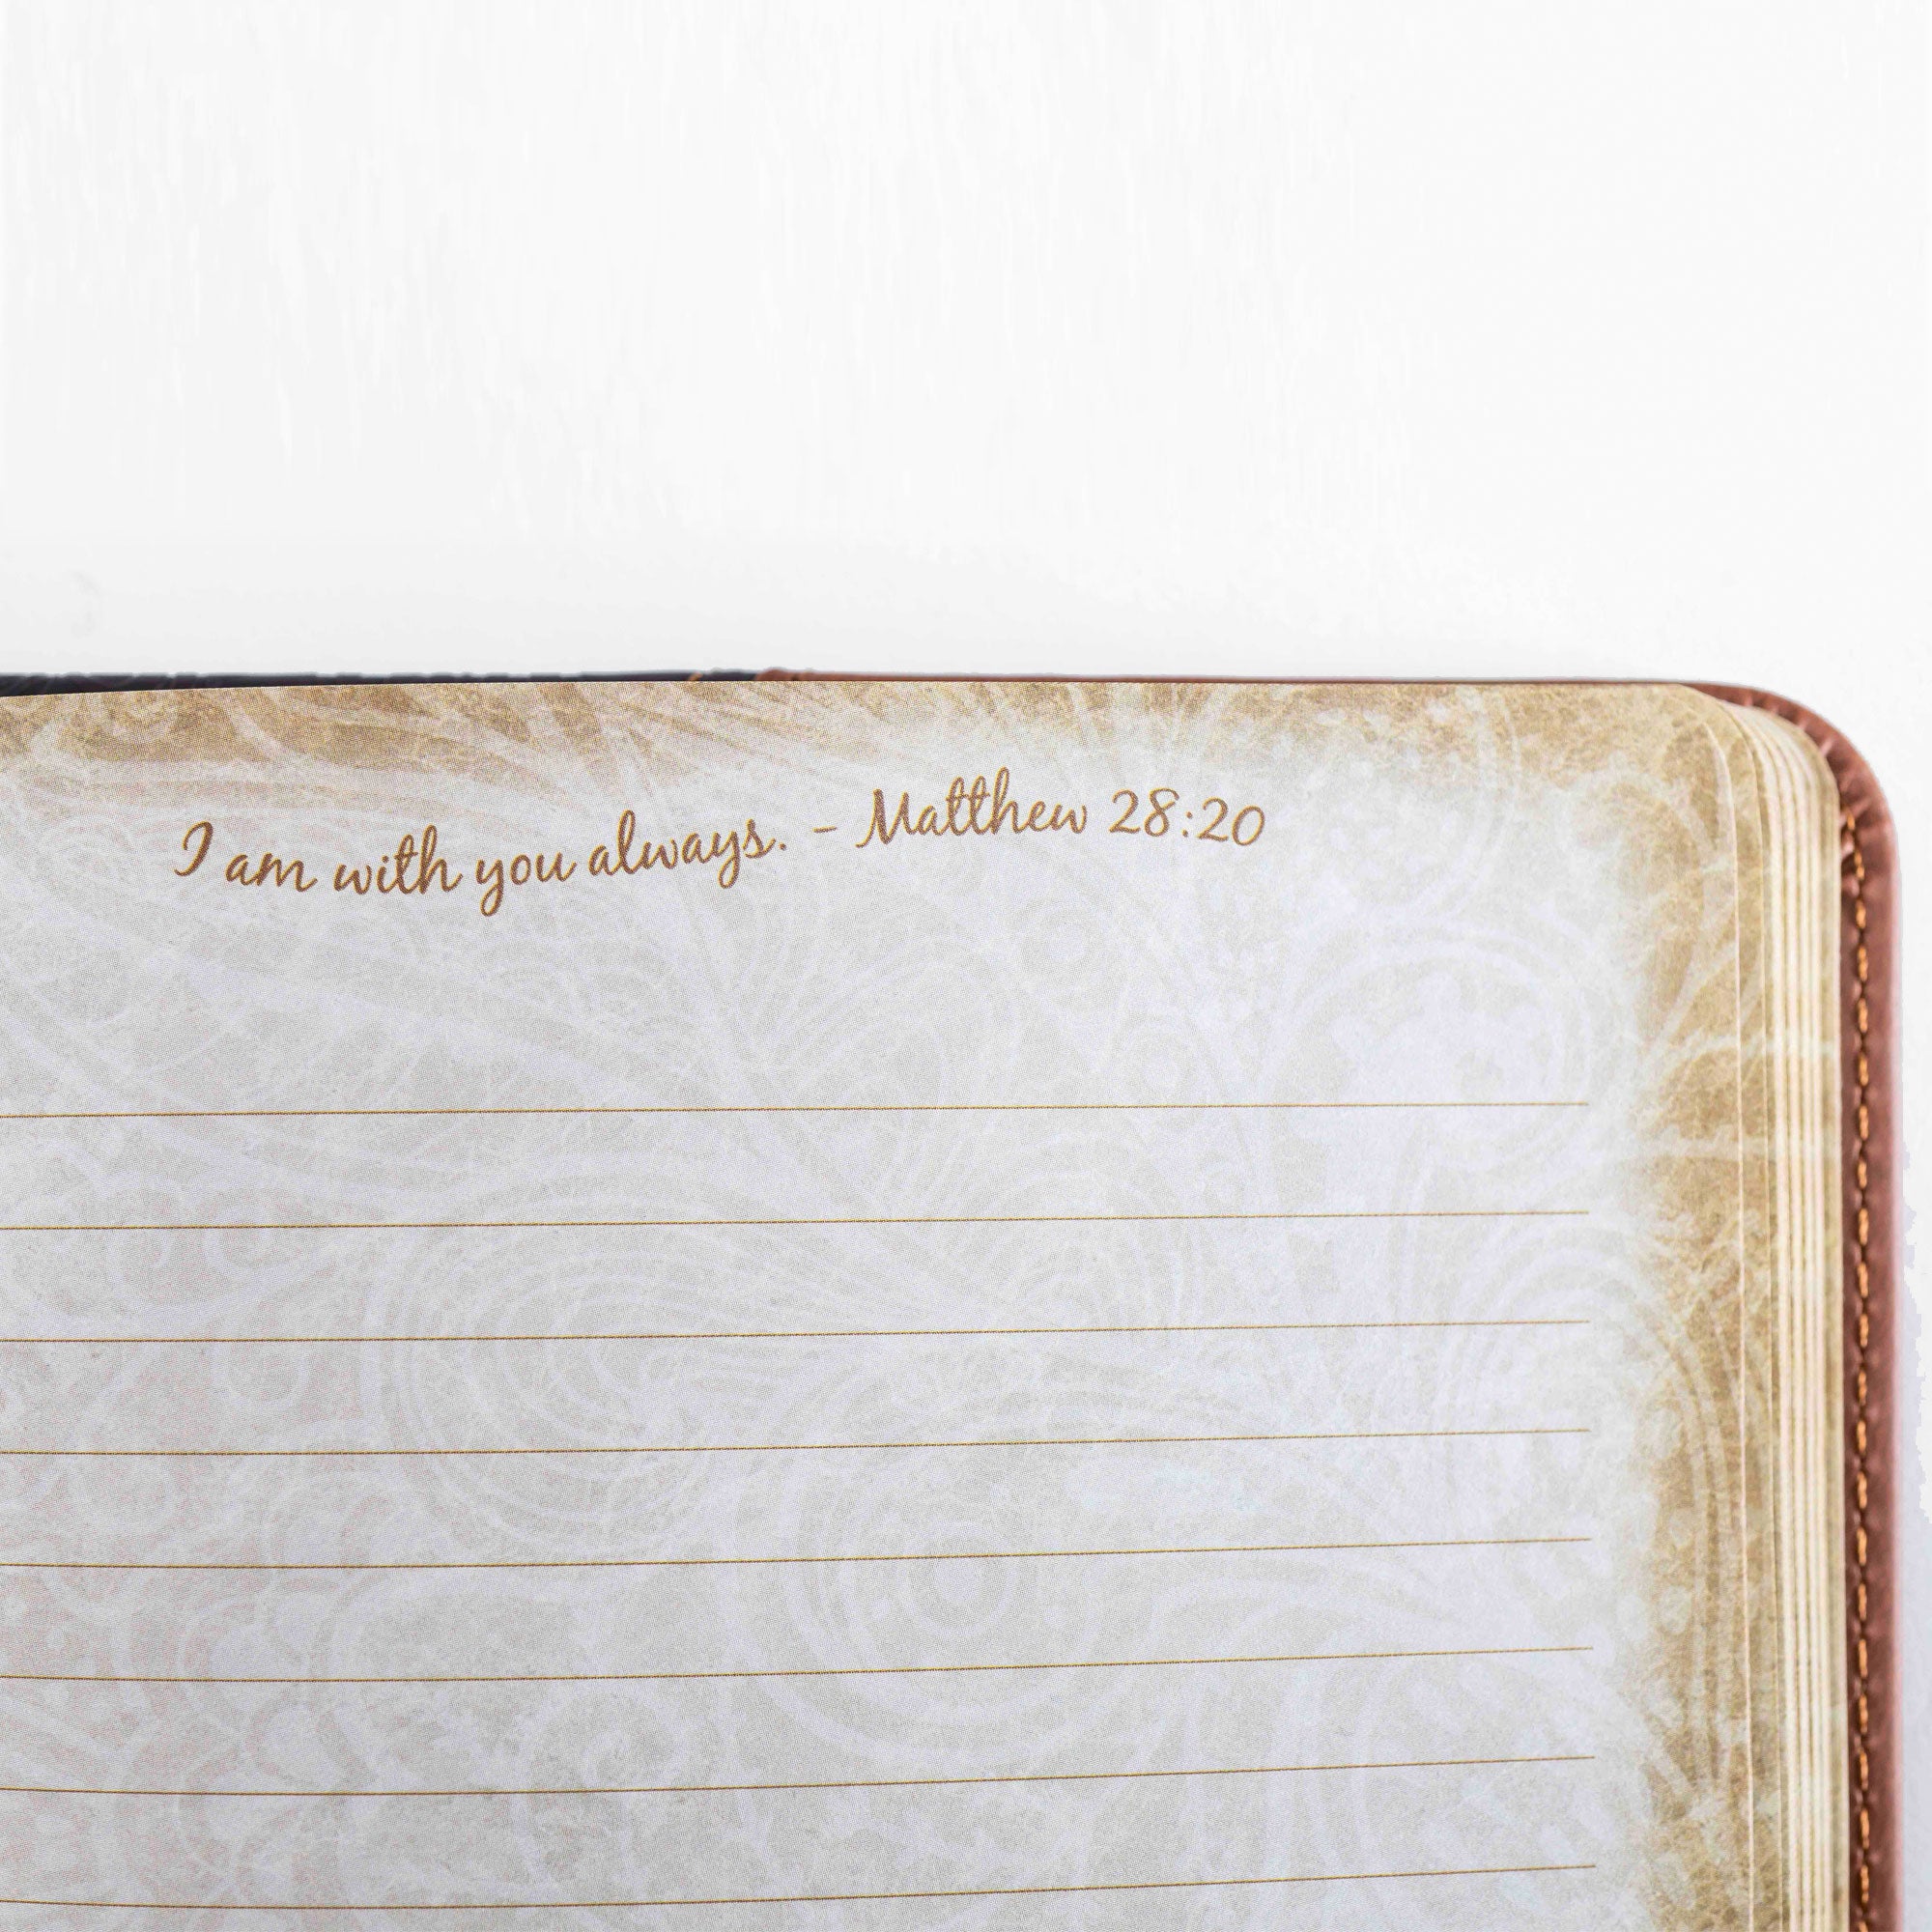 I am with you always. - Matthew 28:20